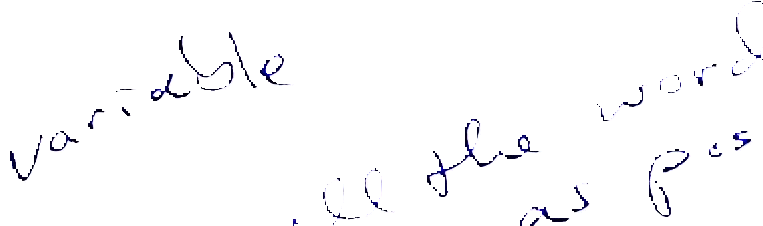 variable
the word
as pos